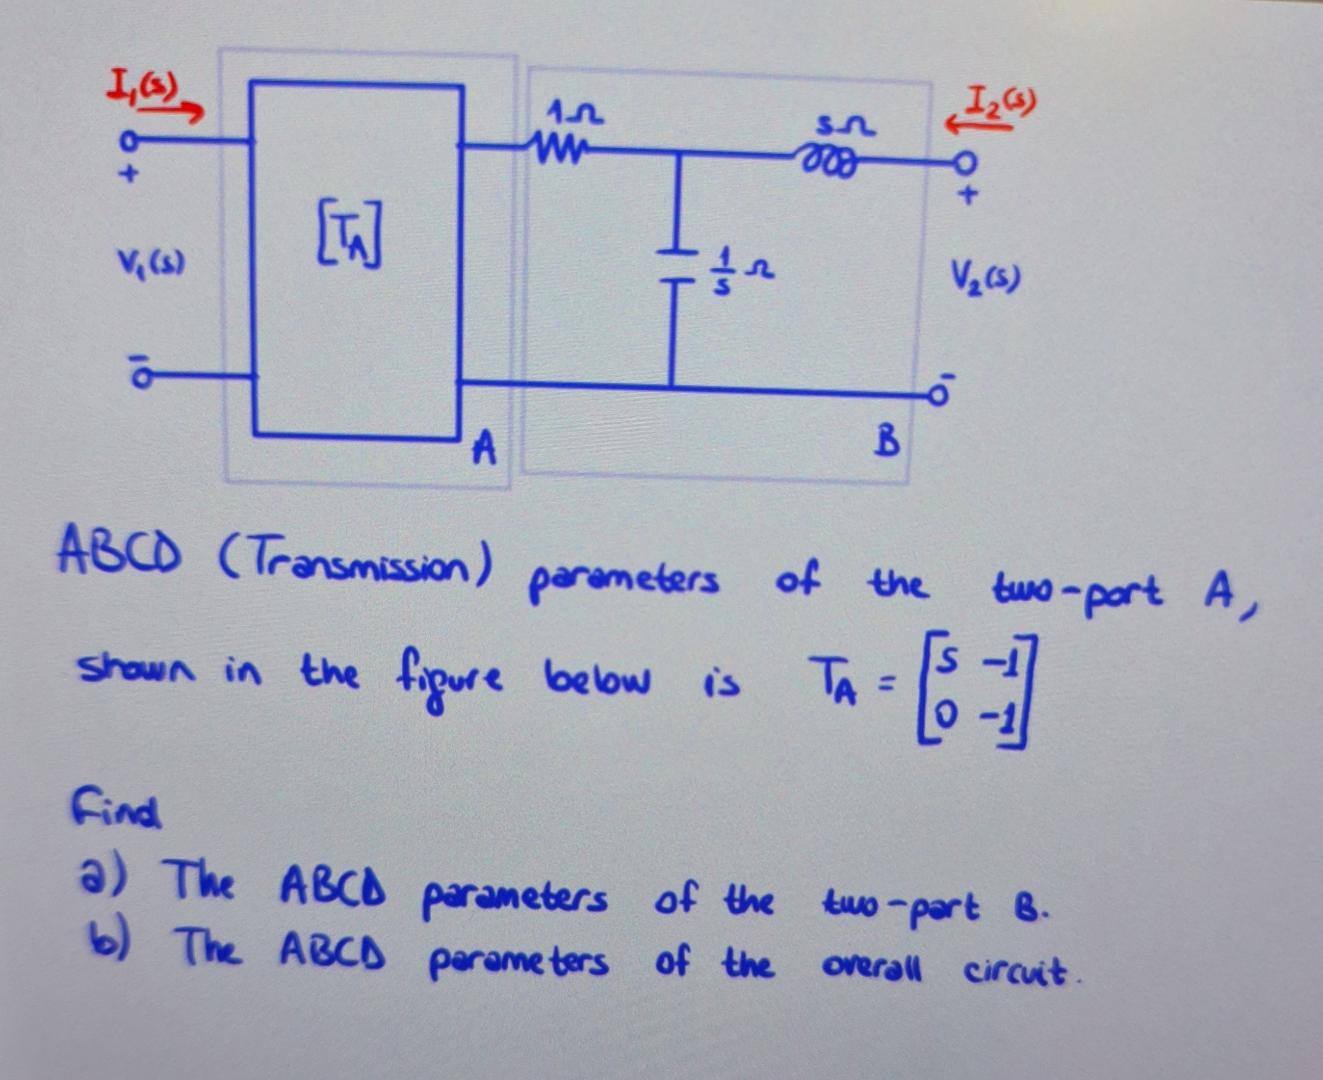 I₁(s)
1Ω
sΩ
I₂(s)
+
+
[T_A]
V₁(s)
1/s Ω
V₂(s)
-
-
A
B
ABCD (Transmission) parameters of the two-port A,
shown in the figure below is T_A = [s -1
0 -1]
Find
a) The ABCD parameters of the two-port B.
b) The ABCD parameters of the overall circuit.